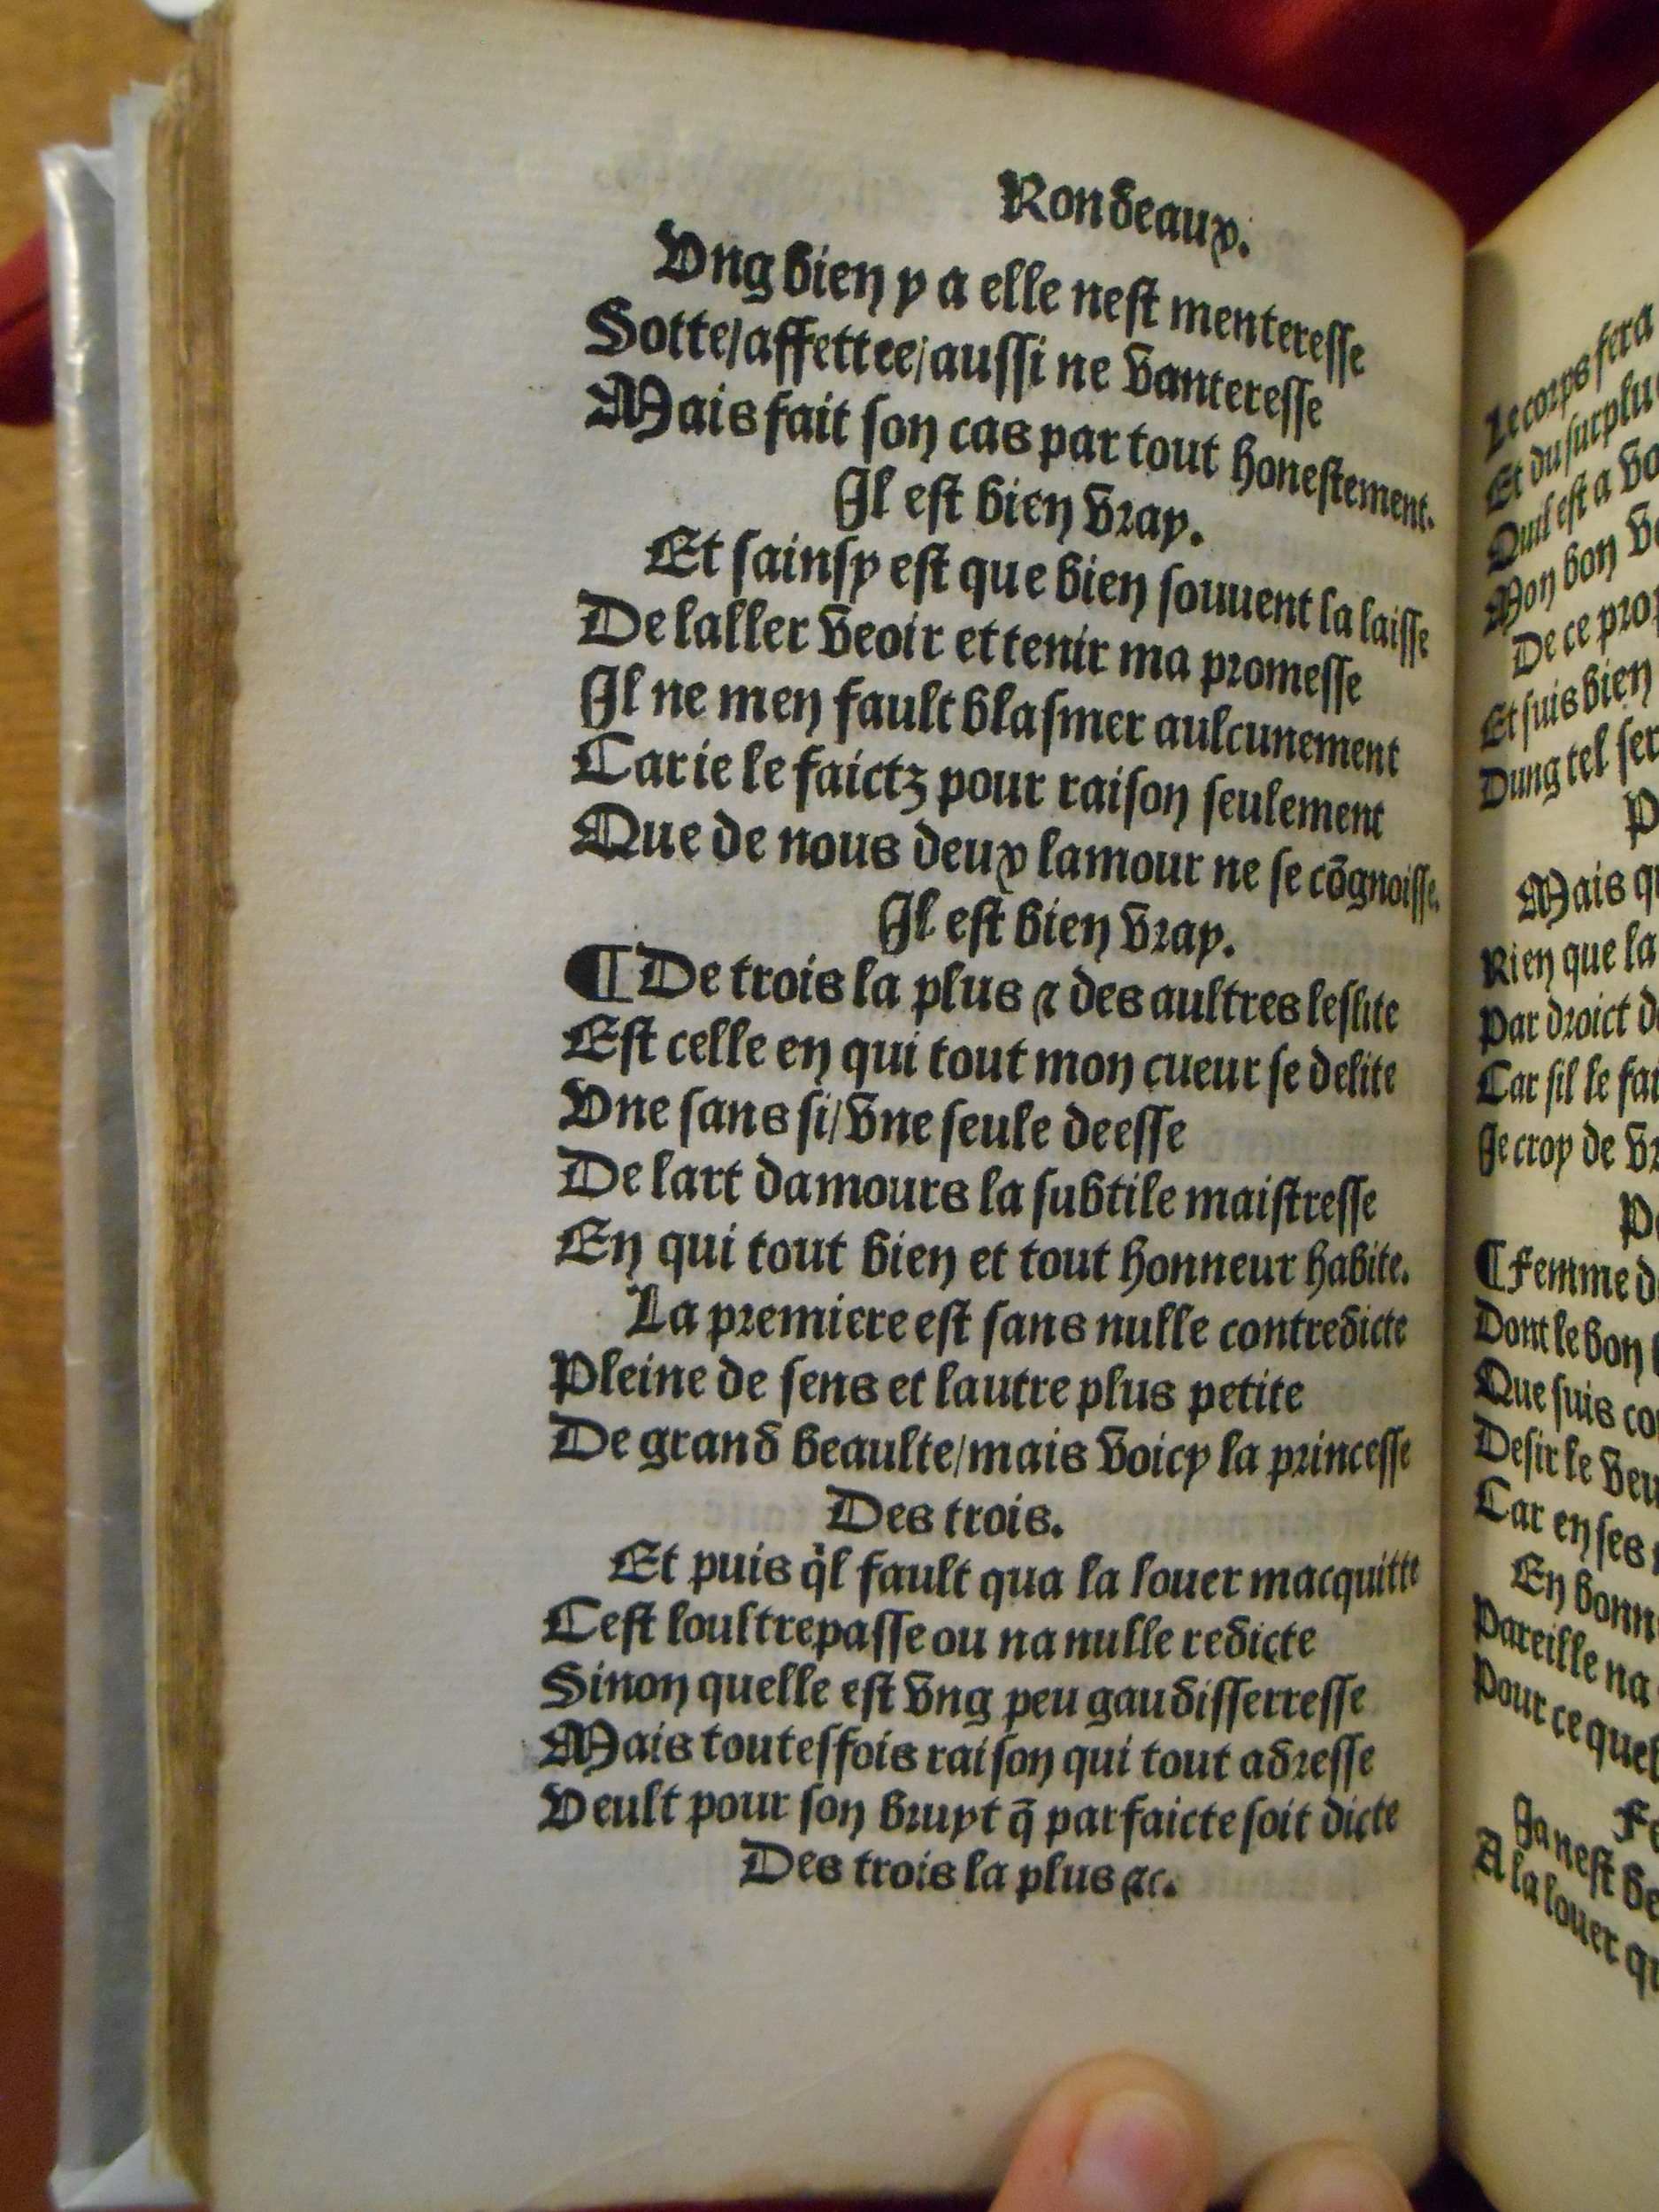 Rondeaux.
Vng bien y a elle nest menteresse
Sotte/affettee/aussi ne vanteresse
Mais fait son cas par tout honestement.
Il est bien vray.
Et sainsy est que bien souuent la laisse
De laller veoir et tenir ma promesse
Il ne men fault blasmer aulcunement
Car ie le faictz pour raison seulement
Que de nous deux lamour ne se cõgnoisse.
Il est bien vray.
¶ De trois la plus & des aultres leslite
Est celle en qui tout mon cueur se delite
Vne sans si/vne seule deesse
De lart damours la subtile maistresse
En qui tout bien et tout honneur habite.
La premiere est sans nulle contredicte
Pleine de sens et lautre plus petite
De grand beaulte/mais voicy la princesse
Des trois.
Et puis q̉l fault qua la louer macquitte
Cest loultrepasse ou na nulle redicte
Sinon quelle est vng peu gaudisserresse
Mais toutesfois raison qui tout adresse
Veult pour son bruyt q̃ parfaicte soit dicte
Des trois la plus &c.
Le corps sera
Et du surplus
Quil est a
Mon bon
De ce
Et suis bien
Dung tel
Mais
Rien que la
Par droict
Car sil le
Je croy de
¶ Femme
Dont le bon
Que suis
Desir le
Car en ses
En
Pareille na
Pour ce
Ja nest
A la louer